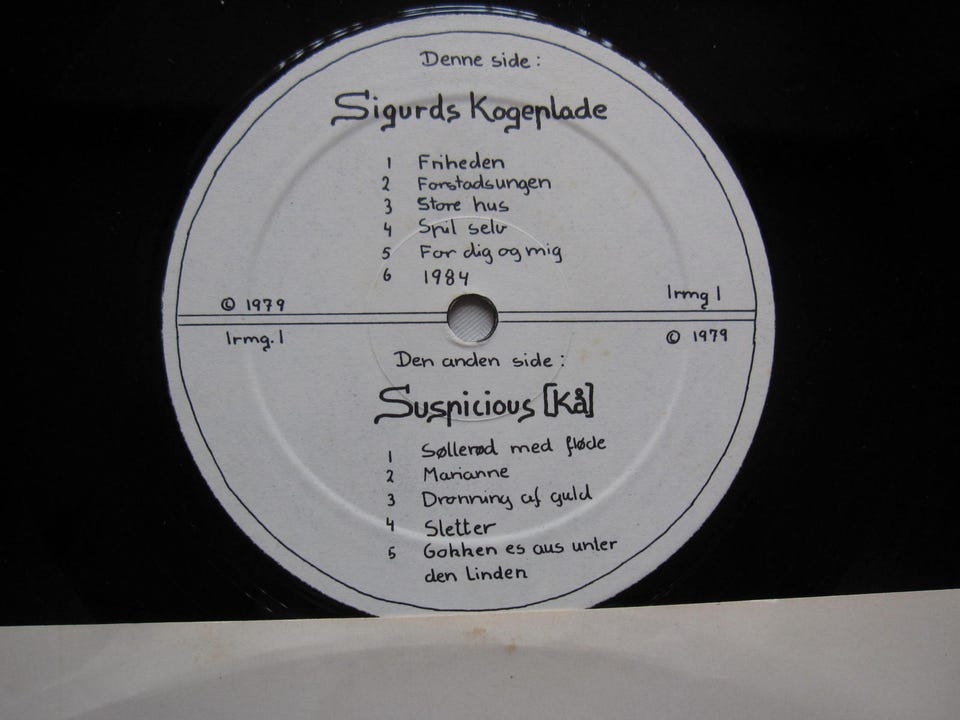 Denne side:
Sigurds Kogeplade
1 Friheden
2 Forstadsungen
3 Store hus
4 Spil selv
5 For dig og mig
6 1984
© 1979 Irmg 1
Irmg. 1 © 1979
Den anden side:
Suspicious [Kå]
1 Søllerød med fløde
2 Marianne
3 Dronning af guld
4 Sletter
5 Gokken es aus unter
den Linden